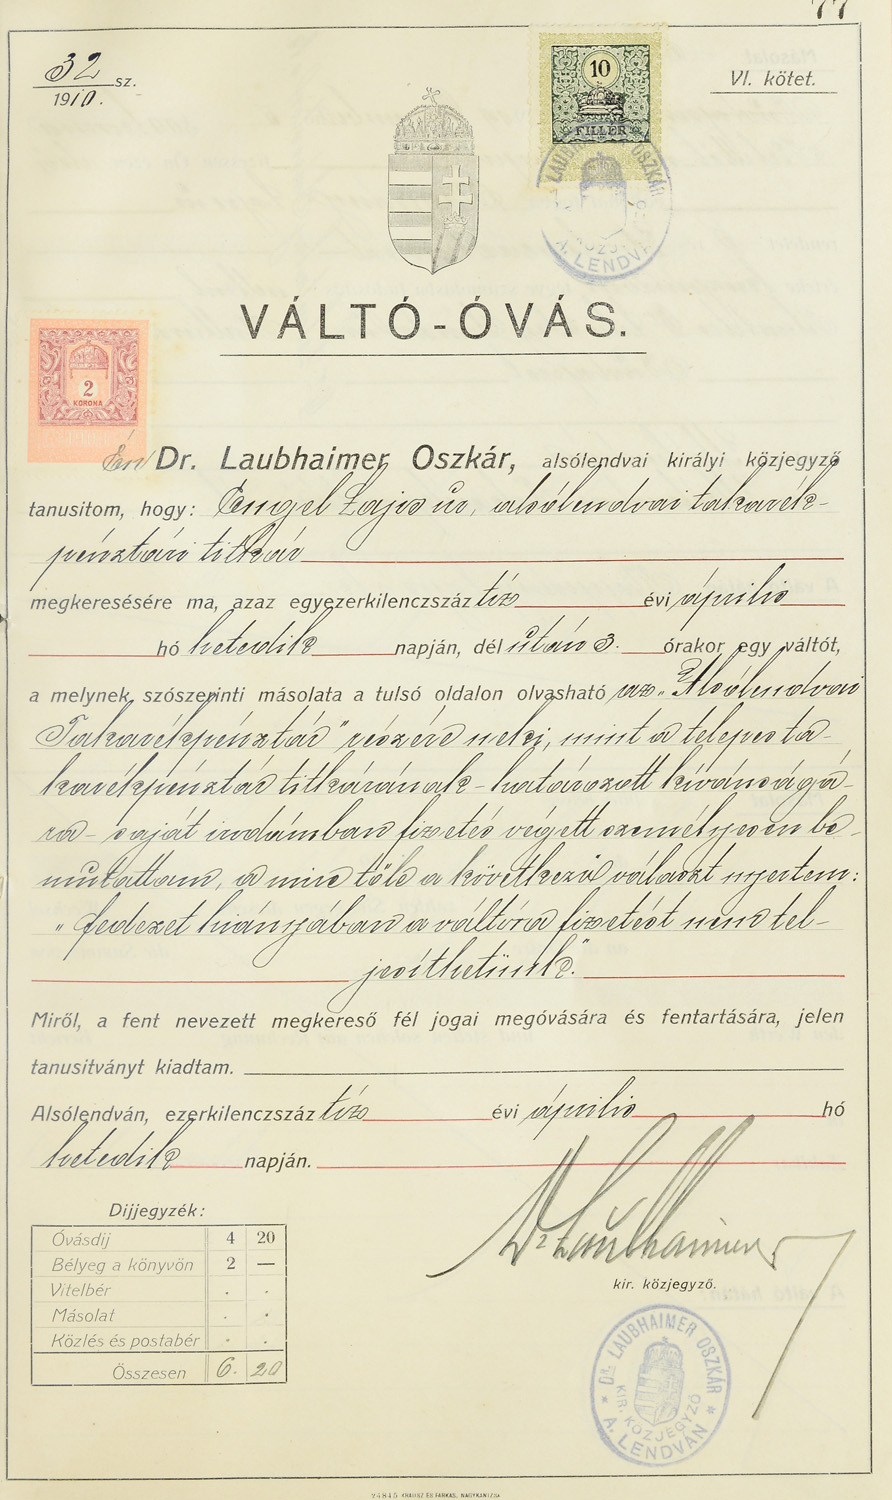 77
32 sz.
1910.
VI. kötet.
10
FILLÉR
LAUBHAIMER OSZKÁR
A. LENDVÁN
VÁLTÓ-ÓVÁS.
2
KORONA
Én Dr. Laubhaimer Oszkár, alsólendvai királyi közjegyző
tanusitom, hogy: Engel Lajos úr, alsólendvai takarék-
pénztári titkár
megkeresésére ma, azaz egyezerkilenczszáz tíz évi április
hó hetedik napján, dél után 3. órakor egy váltót,
a melynek szószerinti másolata a tulsó oldalon olvasható az „Alsólendvai
Takarékpénztár" részére neki, mint a telepes ta-
karékpénztár titkárának - határozott kívánságá-
ra - saját irodámban fizetés végett személyesen be-
mutattam, a mire tőle a következő választ nyertem:
„fedezet hiányában a váltóra fizetést nem tel-
jesíthetünk."
Miről, a fent nevezett megkereső fél jogai megóvására és fentartására, jelen
tanusitványt kiadtam.
Alsólendván, ezerkilenczszáz tíz évi április hó
hetedik napján.
Dr Laubhaimer
kir. közjegyző.
Dijjegyzék:
Óvásdij 4 20
Bélyeg a könyvön 2 —
Vitelbér . .
Másolat . .
Közlés és postabér . .
Összesen 6. 20
Dr. LAUBHAIMER OSZKÁR
KIR. KÖZJEGYZŐ
* A. LENDVÁN *
24845 KRAUSZ ÉS FARKAS, NAGYKANIZSA